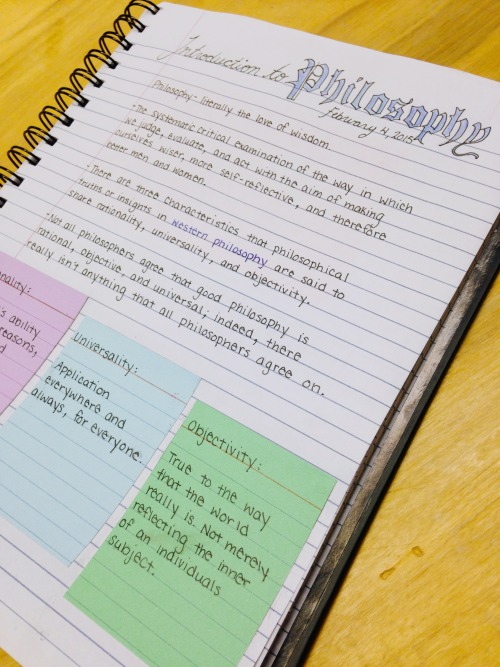 Introduction to Philosophy
february 4, 2015
Philosophy - literally the love of wisdom.
-The systematic critical examination of the way in which
we judge, evaluate, and act with the aim of making
ourselves wiser, more self-reflective, and therefore
better men and women.
-There are three characteristics that philosophical
truths or insights in western philosophy are said to
share rationality, universality, and objectivity.
-Not all philosophers agree that good philosophy is
rational, objective, and universal; indeed, there
really isn't anything that all philosophers agree on.
nality:
's ability
reasons,
d
Universality:
Application
everywhere and
always, for everyone.
Objectivity:
True to the way
that the world
really is. Not merely
reflecting the inner
of an individuals
subject.